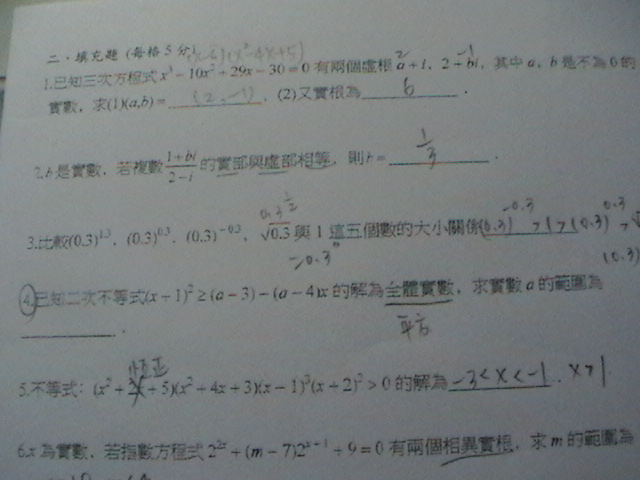 二、填充題 (每格5分) (x-6)(x²-4x+5)
1.已知三次方程式 x³-10x²+29x-30=0 有兩個虛根 a+i, 2+bi, 其中 a, b 是不為 0 的
實數, 求(1)(a,b)= (2,-1), (2)又實根為 6
2.b 是實數, 若複數 (1+bi)/(2-i) 的實部與虛部相等, 則 b= 1/3 .
3.比較(0.3)^1.3, (0.3)^0.3, (0.3)^-0.3, √0.3 與 1 這五個數的大小關係 (0.3)^-0.3 > 1 > (0.3)^0.3 >
4.已知二次不等式(x+1)² ≥ (a-3)-(a-4)x 的解為全體實數, 求實數 a 的範圍為
平方
恆正
5.不等式: (x²+ +5)(x²+4x+3)(x-1)³(x+2)² > 0 的解為 -3<x<-1, x>1
6.x 為實數, 若指數方程式 2^2x+(m-7)2^x+1+9=0 有兩個相異實根, 求 m 的範圍為